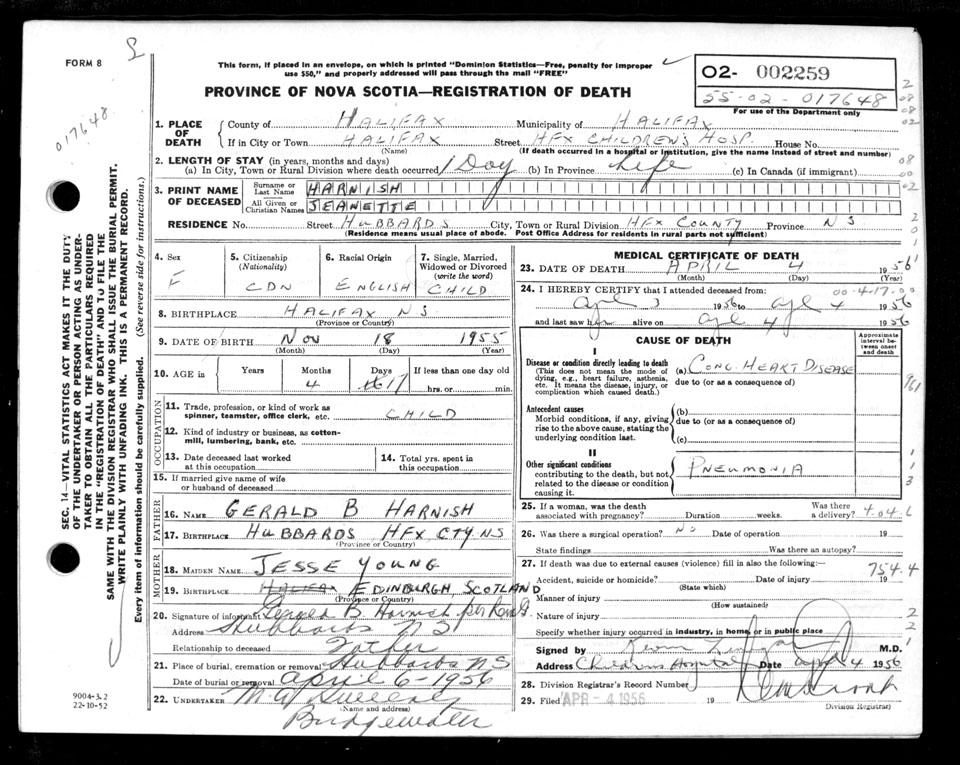 FORM 8
This form, if placed in an envelope, on which is printed "Dominion Statistics—Free, penalty for improper
use $50," and properly addressed will pass through the mail "FREE"
PROVINCE OF NOVA SCOTIA—REGISTRATION OF DEATH
O2- 002259
55-02-017648
For use of the Department only
017648
1. PLACE OF DEATH
County of HALIFAX Municipality of HALIFAX
If in City or Town HALIFAX Street HFX CHILDREN'S HOSP House No.
(Name) (If death occurred in a hospital or institution, give the name instead of street and number)
2. LENGTH OF STAY (in years, months and days)
(a) In City, Town or Rural Division where death occurred 1 Day (b) In Province Life (c) In Canada (if immigrant)
3. PRINT NAME OF DECEASED
Surname or Last Name HARNISH
All Given or Christian Names JEANETTE
RESIDENCE No. Street HUBBARDS City, Town or Rural Division HFX COUNTY Province N S
(Residence means usual place of abode. Post Office Address for residents in rural parts not sufficient)
4. Sex F
5. Citizenship (Nationality) CDN
6. Racial Origin ENGLISH
7. Single, Married, Widowed or Divorced (write the word) CHILD
8. BIRTHPLACE HALIFAX NS
(Province or Country)
9. DATE OF BIRTH NOV 18 1955
(Month) (Day) (Year)
10. AGE in Years Months 4 Days 17 If less than one day old hrs. or min.
OCCUPATION
11. Trade, profession, or kind of work as spinner, teamster, office clerk, etc. CHILD
12. Kind of industry or business, as cotton-mill, lumbering, bank, etc.
13. Date deceased last worked at this occupation
14. Total yrs. spent in this occupation
15. If married give name of wife or husband of deceased
FATHER
16. NAME GERALD B HARNISH
17. BIRTHPLACE HUBBARDS HFX CTY. NS
(Province or Country)
MOTHER
18. MAIDEN NAME JESSE YOUNG
19. BIRTHPLACE EDINBURGH, SCOTLAND
(Province or Country)
20. Signature of informant Gerald B. Harnish per
Address Hubbards NS
Relationship to deceased Father
21. Place of burial, cremation or removal Hubbards NS
Date of burial or removal April 6-1956
22. UNDERTAKER
(Name and address)
Bridgewater
MEDICAL CERTIFICATE OF DEATH
23. DATE OF DEATH APRIL 4 1956
(Month) (Day) (Year)
24. I HEREBY CERTIFY that I attended deceased from: 00-4-17-00
Apl 3 1956 to Apl 4 1956
and last saw her alive on Apl 4 1956
CAUSE OF DEATH
Approximate interval between onset and death
I
Disease or condition directly leading to death
(This does not mean the mode of dying, e.g., heart failure, asthenia, etc. It means the disease, injury, or complication which caused death.)
(a) CONG. HEART DISEASE
due to (or as a consequence of)
Antecedent causes
Morbid conditions, if any, giving rise to the above cause, stating the underlying condition last.
(b)
due to (or as a consequence of)
(c)
II
Other significant conditions
contributing to the death, but not related to the disease or condition causing it.
PNEUMONIA
25. If a woman, was the death associated with pregnancy? Duration weeks. Was there a delivery?
26. Was there a surgical operation? No Date of operation
State findings Was there an autopsy?
27. If death was due to external causes (violence) fill in also the following:— 754.4
Accident, suicide or homicide? Date of injury 19
(State which)
Manner of injury
(How sustained)
Nature of injury
Specify whether injury occurred in industry, in home, or in public place
Signed by M.D.
Address Childrens Hospital Date April 4 1956
28. Division Registrar's Record Number
29. Filed APR - 4 1956 19
Division Registrar)
SEC. 14—VITAL STATISTICS ACT MAKES IT THE DUTY
OF THE UNDERTAKER OR PERSON ACTING AS UNDER-
TAKER TO OBTAIN ALL THE PARTICULARS REQUIRED
IN THE "REGISTRATION OF DEATH" AND TO FILE THE
SAME WITH THE DIVISION REGISTRAR WHO SHALL ISSUE THE BURIAL PERMIT.
WRITE PLAINLY WITH UNFADING INK. THIS IS A PERMANENT RECORD.
Every item of information should be carefully supplied. (See reverse side for instructions.)
9004-3.2
22-10-52